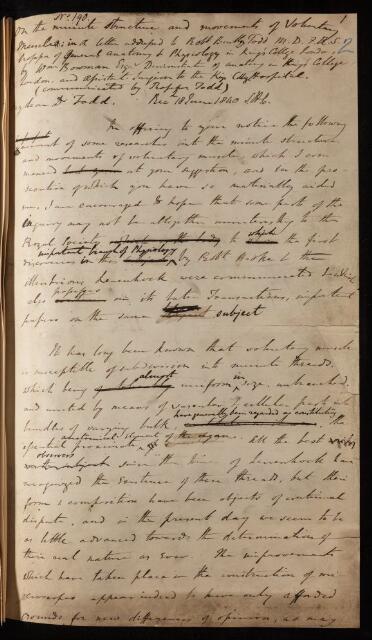 No 190.
1
On the minute Structure and movements of Voluntary
Muscle; in a letter addressed to Robt Bentley Todd M.D. F.R.S.
2
Professor of General Anatomy & Physiology in King's College London;
by Wm Bowman Esqr Demonstrator of Anatomy in King's College
London, and Assistant Surgeon to the King's College Hospital.
(Communicated by Professor Todd)
My dear Dr Todd. Recd 18 June 1840
In offering to your notice the following
account of some researches into the minute structure
and movements of voluntary muscle, which I com
menced at your suggestion, and in the pro-
secution of which you have so materially aided
me, I am encouraged to hope that some part of the
inquiry may not be altogether uninteresting to the
Royal Society, to which the first
discoveries in this important branch of Physiology by Robt Hooke & the
illustrious Leeuwenhoek were communicated &
also possesses in its late Transactions, important
papers on the same subject
It has long been known that voluntary muscle
is susceptible of subdivision into minute threads,
which being almost uniform in size, unbranched,
and united by means of vascular & cellular parts into
bundles of varying bulk, have generally been regarded as constituting the
anatomical element of the organ. All the best
observers since the time of Leeuwenhoek have
recognized the existence of these threads, but their
form & composition have been objects of continual
dispute, and in the present day we seem to be
as little advanced towards the determination of
their real nature as ever. The improvements
which have taken place in the construction of mi
croscopes appear indeed to have only afforded
grounds for new differences of opinion, as may